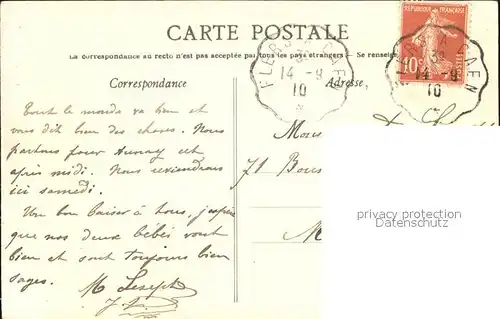 CARTE POSTALE
La correspondance au recto n'est pas acceptée par tous les pays étrangers — Se renseigner
Correspondance
Adresse,
RÉPUBLIQUE FRANÇAISE
10c
FLERS A CAEN
14 - 9
10
FLERS A CAEN
14 - 9
10
Tout le monde va bien et
vous dit bien des choses. Nous
partons pour Aunay cet
après midi. Nous reviendrons
ici samedi.
Un bon baiser à tous, j'espère
que nos deux bébés vont
bien et sont toujours bien
sages.
M Joseph
71
M
privacy protection
Datenschutz